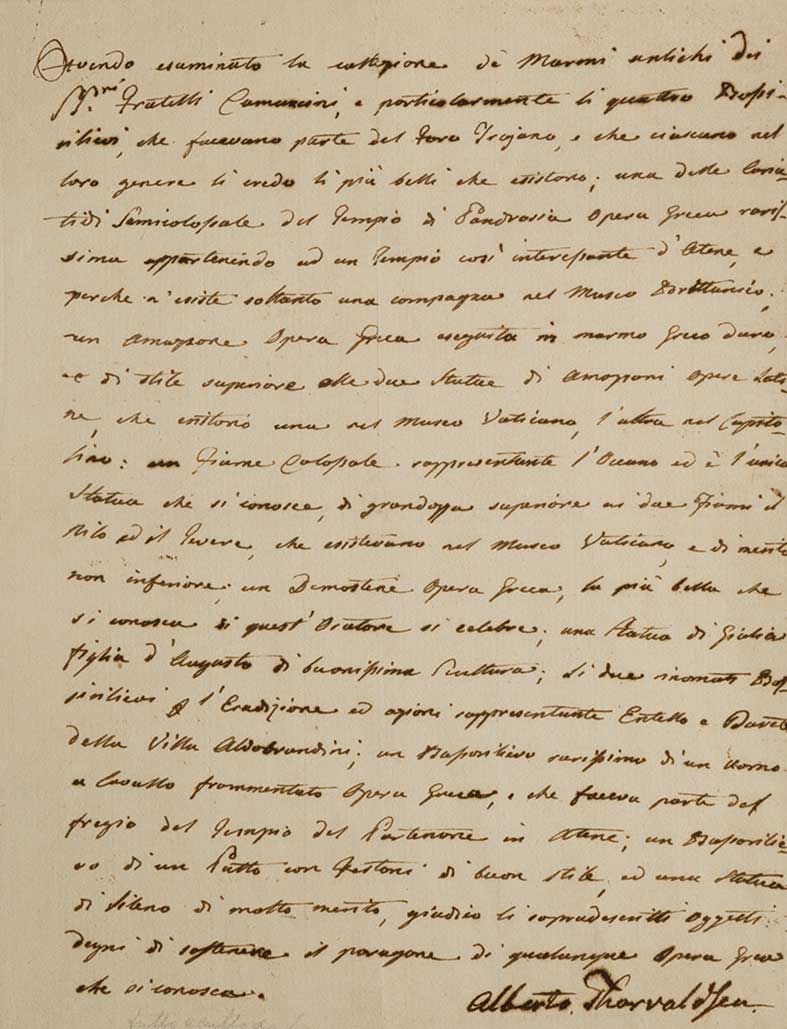 Avendo esaminato la collezione de' Marmi antichi dei
Sigri. Fratelli Camuccini, e particolarmente li quattro Bassi-
rilievi, che facevano parte del Foro Trajano, e che ciascuno nel
loro genere li credo li più belli che esistono; una delle Caria-
tidi Semicolossale del Tempio di Pandrossia Opera Greca raris-
sima appartenendo ad un Tempio così interessante d'Atene, e
perche n'esiste soltanto una compagna nel Museo Brittanico;
un Amazzone Opera Greca eseguita in marmo Greco duro,
e di stile superiore alle due Statue di Amazzoni Opere Lati-
ne, che esistono una nel Museo Vaticano, l'altra nel Capito-
lino: un Fiume Colossale rappresentante l'Oceano ed è l'unica
Statua che si conosca, di grandezza superiore ai due Fiumi il
Nilo ed il Tevere, che esistevano nel Museo Vaticano, e di merito
non inferiore; un Demostene Opera Greca, la più bella che
si conosca di quest'Oratore si celebre; una Statua di Giulia
figlia d'Augusto di buonissima Scultura; Li due rinomati Bas-
sirilievi p l'Erudizione ed azioni rappresentante Entello e Darete
della Villa Aldobrandini; un Bassorilievo rarissimo di un Uomo
a Cavallo frammentato Opera Greca, e che faceva parte del
fregio del Tempio del Partenone in Atene; un Bassorilie-
vo di un Putto con Festoni di buon stile, ed una Statua
di Sileno di molto merito, giudico li sopradescritti Oggetti
degni di sostenere il paragone di qualunque Opera Greca
che si conosca.
Alberto Thorvaldsen.